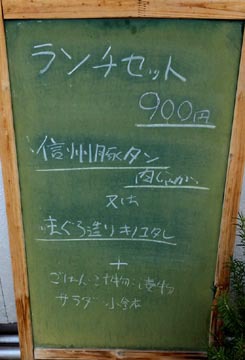 ランチセット
900円
信州豚タン
肉じゃが
又は
まぐろ造り キノコタレ
+
ごはん 汁物 漬物
サラダ 小鉢